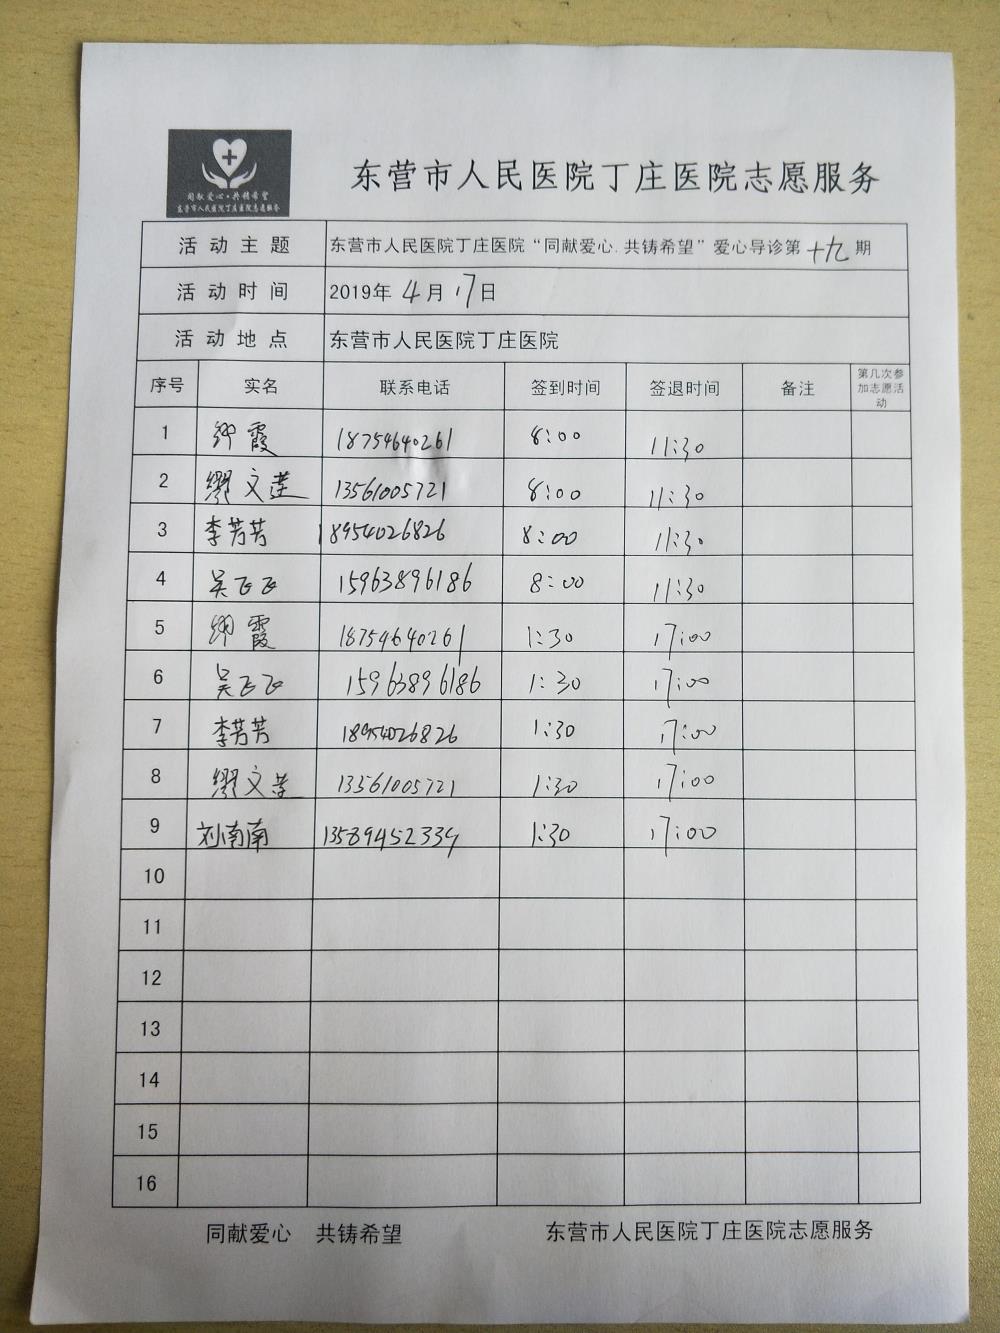 同献爱心·共铸希望
东营市人民医院丁庄医院志愿服务
东营市人民医院丁庄医院志愿服务
活动主题 东营市人民医院丁庄医院“同献爱心.共铸希望”爱心导诊第十九期
活动时间 2019年4月17日
活动地点 东营市人民医院丁庄医院
序号 实名 联系电话 签到时间 签退时间 备注 第几次参加志愿活动
1 霞 18754640261 8:00 11:30
2 缪文莲 13561005721 8:00 11:30
3 李芳芳 18954026826 8:00 11:30
4 吴飞飞 15963896186 8:00 11:30
5 霞 18754640261 1:30 17:00
6 吴飞飞 15963896186 1:30 17:00
7 李芳芳 18954026826 1:30 17:00
8 缪文莲 13561005721 1:30 17:00
9 刘南南 13589452339 1:30 17:00
10
11
12
13
14
15
16
同献爱心 共铸希望 东营市人民医院丁庄医院志愿服务